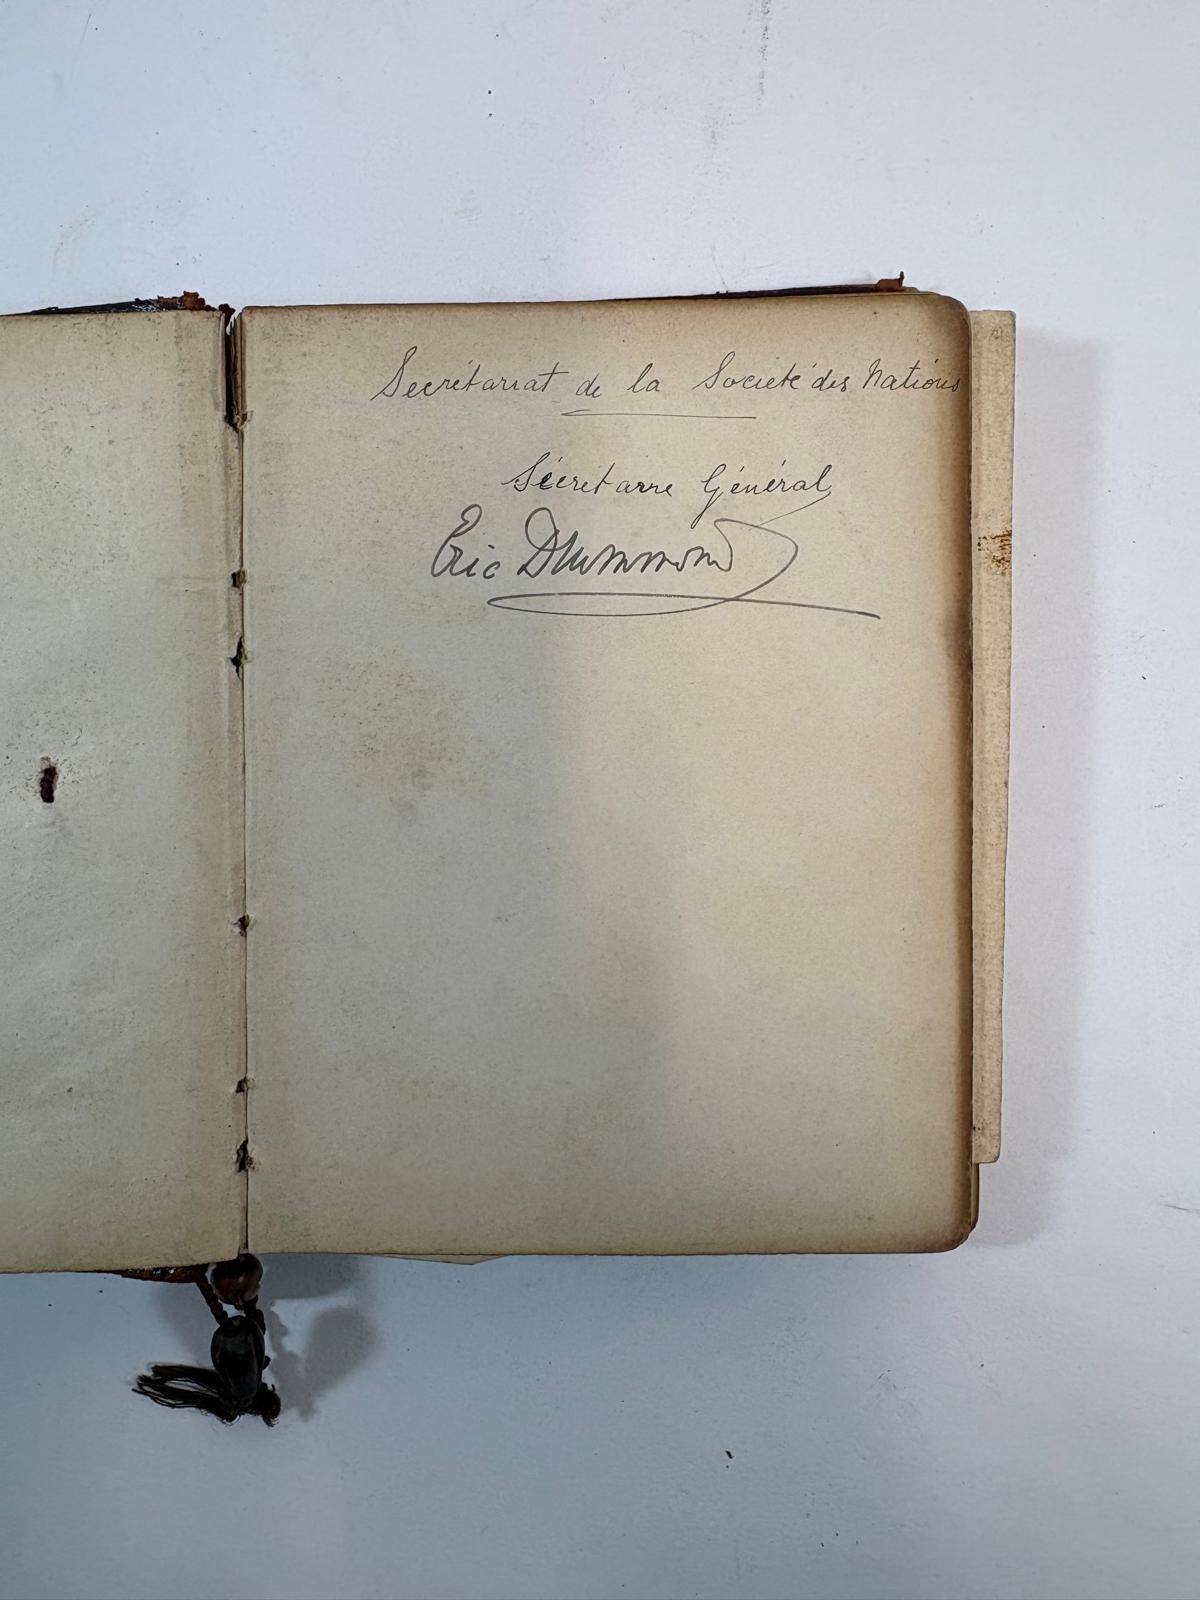 Secrétariat de la Société des Nations
Sécrétaire Général
Eric Drummond